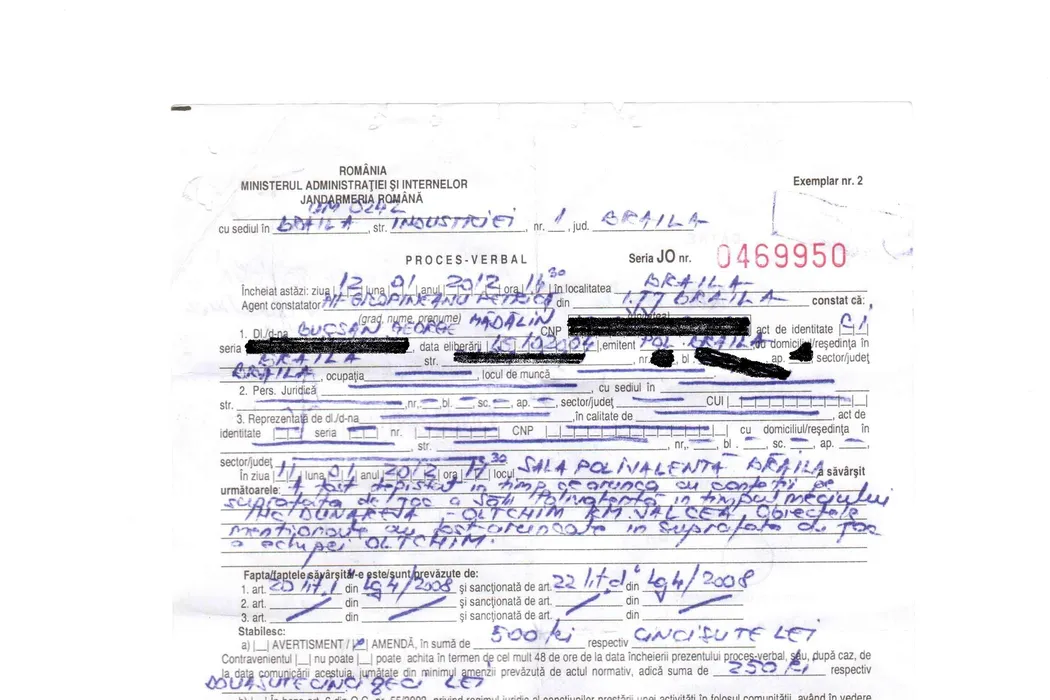 ROMÂNIA
MINISTERUL ADMINISTRAŢIEI ŞI INTERNELOR
JANDARMERIA ROMÂNĂ
Exemplar nr. 2
UM 0242
cu sediul în BRAILA, str. INDUSTRIEI, nr. 1, jud. BRAILA
PROCES-VERBAL Seria JO nr. 0469950
Încheiat astăzi: ziua 12 luna 01 anul 2012 ora 11 30 în localitatea BRAILA
Agent constatator PETRICĂ din BRAILA constat că:
(grad, nume, prenume)
1. Dl./d-na GEORGE MĂDĂLIN CNP act de identitate CI
seria data eliberării emitent POL. BRAILA cu domiciliul/reşedinţa în
BRAILA str. nr. bl. ap. sector/judeţ
BRAILA, ocupaţia, locul de muncă
2. Pers. Juridică, cu sediul în
str. nr. bl. sc. ap. sector/judeţ CUI
3. Reprezentată de dl./d-na, în calitate de, act de
identitate seria nr. CNP cu domiciliul/reşedinţa în
str. nr. bl. sc. ap.
sector/judeţ
În ziua 11 luna 01 anul 2012 ora 17 30 locul SALA POLIVALENTĂ BRĂILA a săvârşit
următoarele: A fost depistat in timp ce arunca cu confetii pe
suprafata de joc a Sălii Polivalentă in timpul meciului
HC DUNAREA - OLTCHIM RM. VALCEA Obiectele
mentionate au fost aruncate in suprafata de joc
a echipei OLTCHIM.
Fapta/faptele săvârşită/-e este/sunt prevăzute de:
1. art. 20 lit. din Lg 4/2008 şi sancţionată de art. 22 lit. d din Lg 4/2008
2. art. din şi sancţionată de art. din
3. art. din şi sancţionată de art. din
Stabilesc:
a) AVERTISMENT / AMENDĂ, în sumă de 500 lei respectiv CINCISUTE LEI
Contravenientul nu poate poate achita în termen de cel mult 48 de ore de la data încheierii prezentului proces-verbal, sau, după caz, de
la data comunicării acestuia, jumătate din minimul amenzii prevăzută de actul normativ, adică suma de 250 lei respectiv
DOUĂSUTECINCIZECI LEI